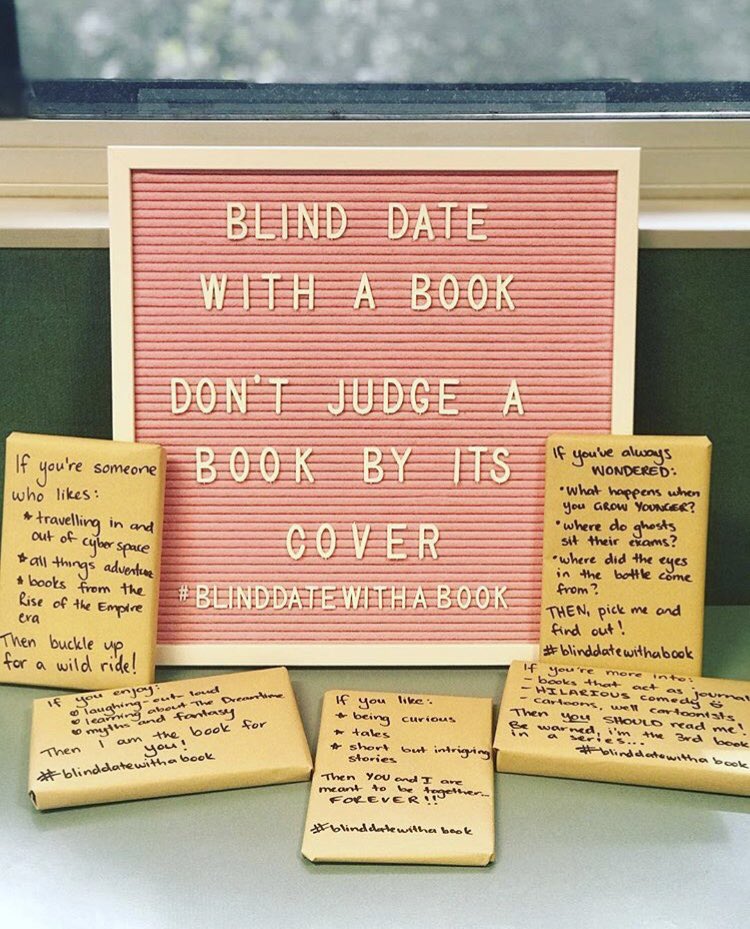 BLIND DATE
WITH A BOOK
DON'T JUDGE A
BOOK BY ITS
COVER
#BLINDDATEWITHABOOK
If you're someone
who likes:
* travelling in and
out of cyber space
* all things adventure
* books from the
Rise of the Empire
era
Then buckle up
for a wild ride!
If you've always
WONDERED:
• What happens when
you GROW YOUNGER?
• where do ghosts
sit their exams?
• where did the eyes
in the bottle come
from?
THEN, pick me and
find out!
#blinddatewithabook
If you enjoy:
laughing-out-loud
learning about The Dreamtime
myths and fantasy
Then I am the book for
you!
#blinddatewithabook
If you like:
* being curious
* tales
* short but intriguing
stories
Then YOU and I are
meant to be together...
FOREVER!!
#blinddatewithabook
If you're more into:
- books that act as journal
- HILARIOUS comedy
- cartoons, well cartoonists
Then you SHOULD read me!
Be warned, i'm the 3rd book
in a series...
#blinddatewithabook